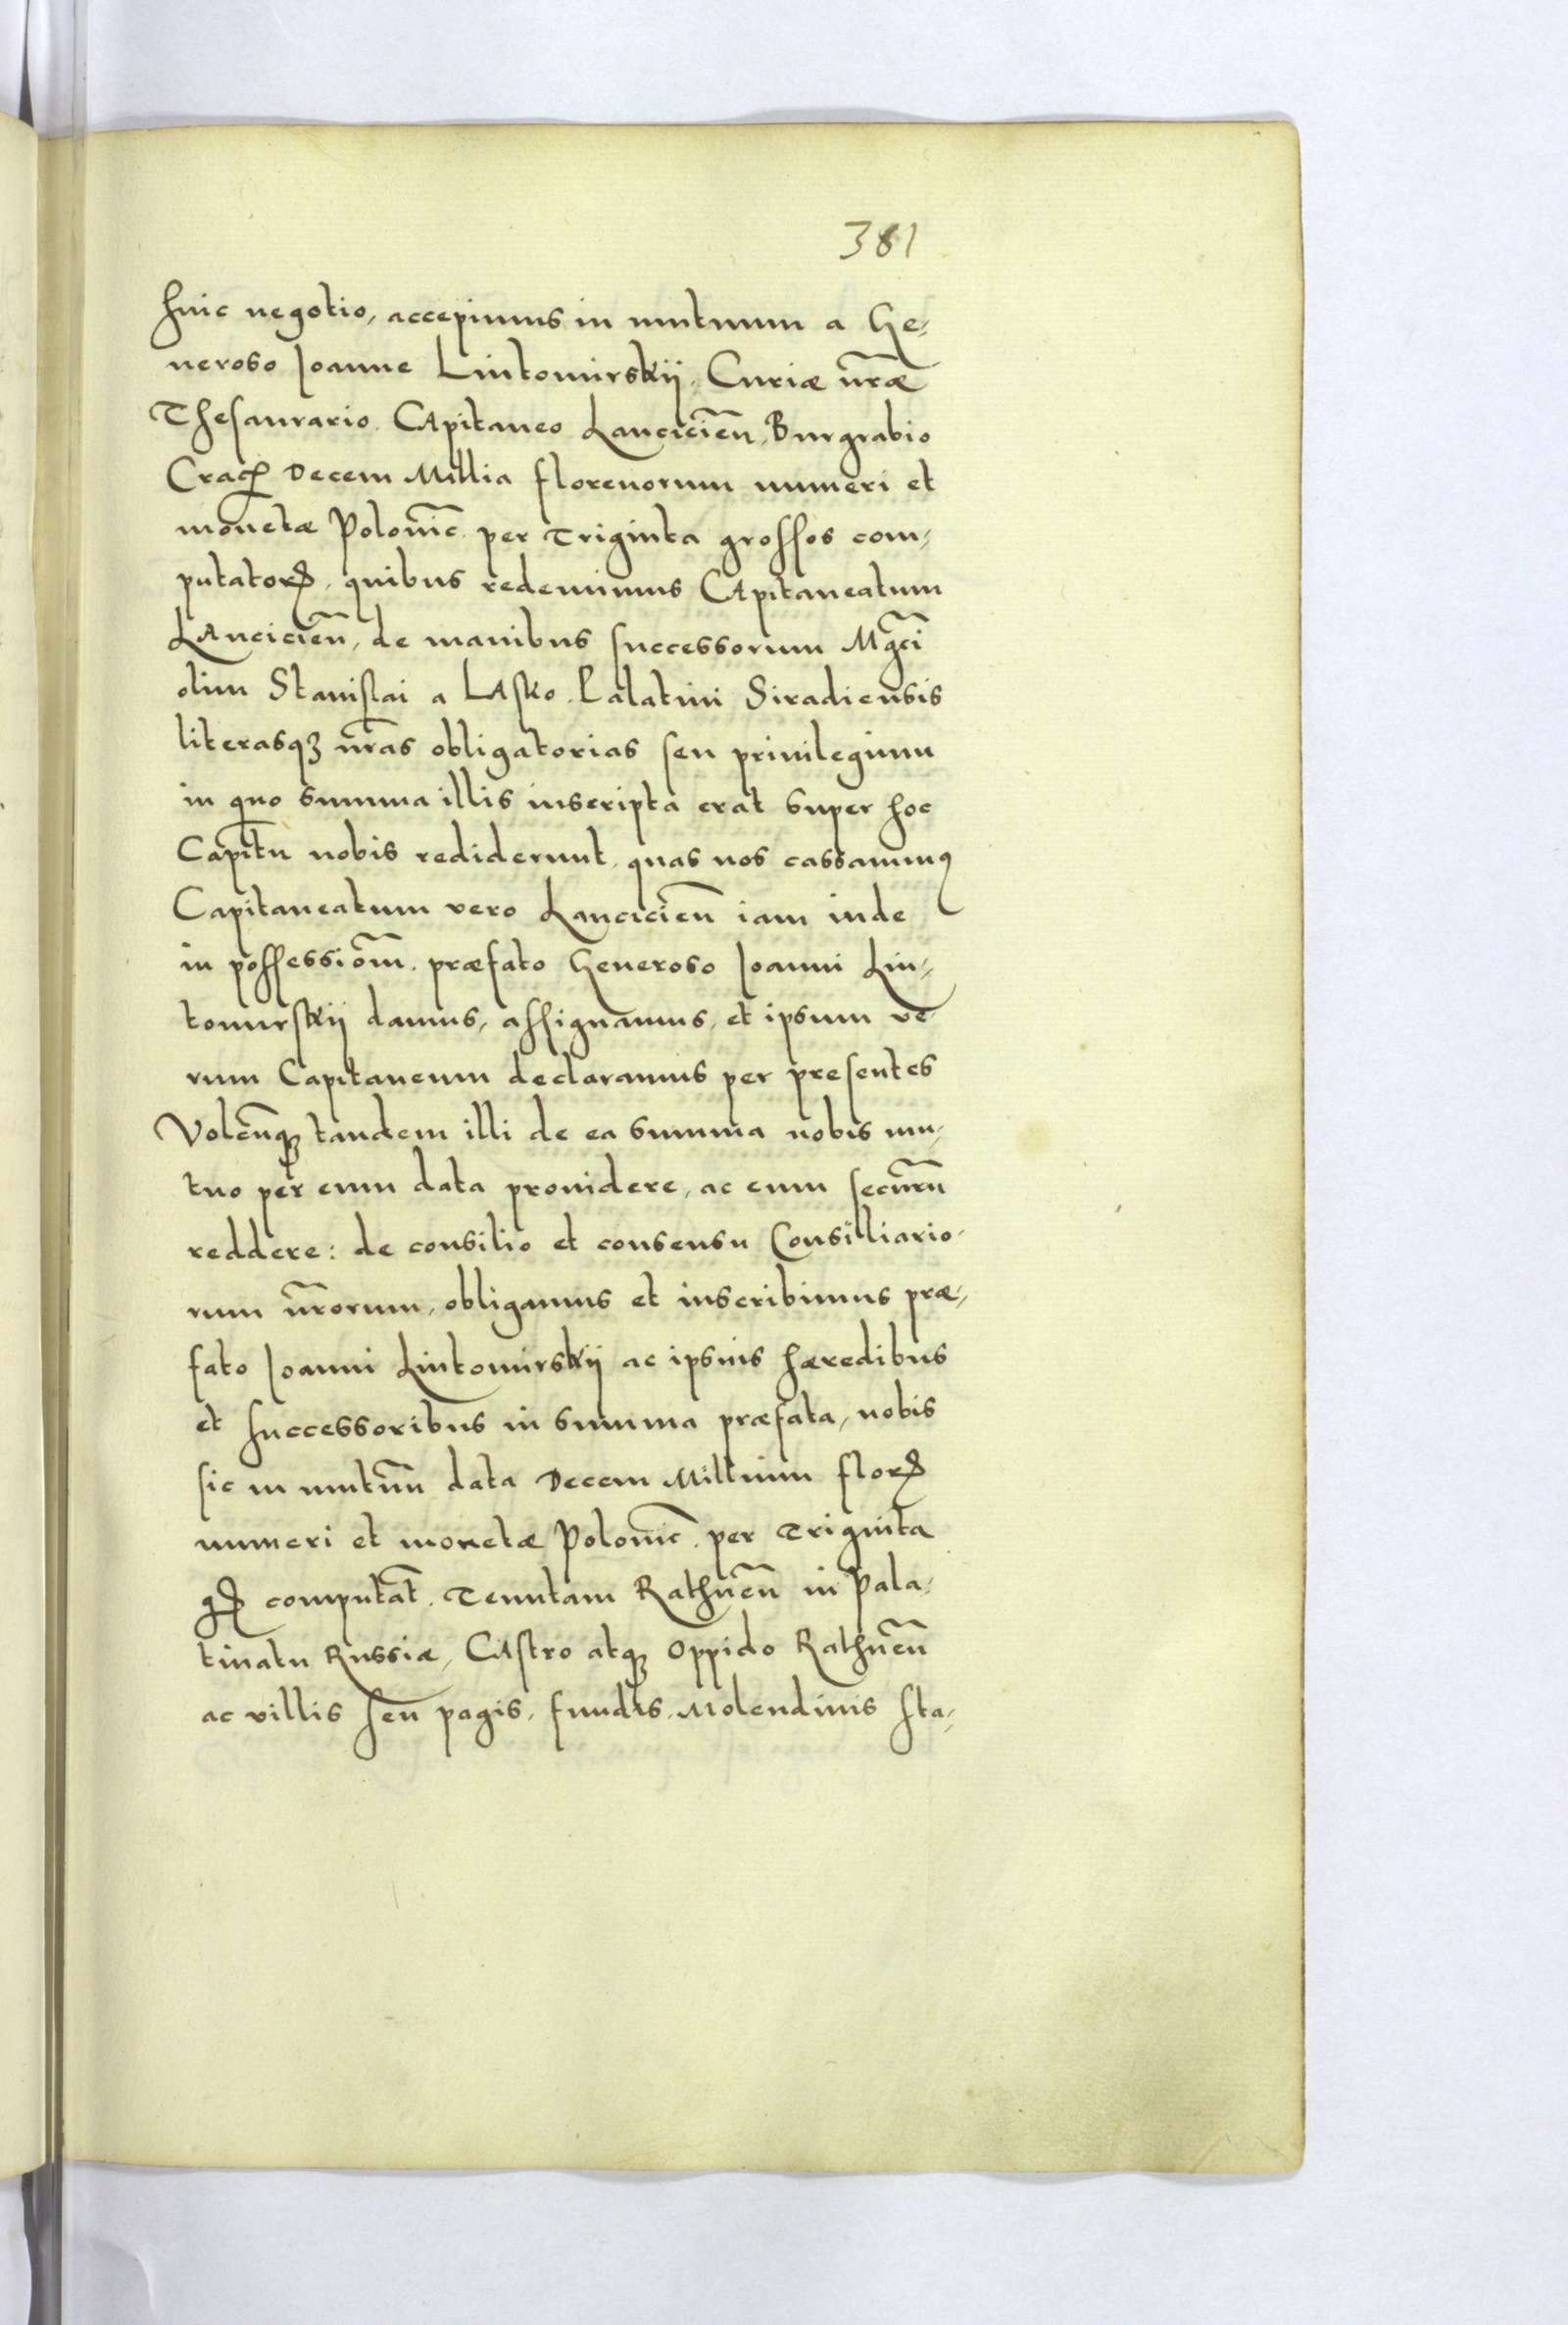 381
huic negotio, accepimus in mutuum a Ge,
neroso Joanne Lutomirskij, Curiæ nr̃æ
Thesaurario. Capitaneo Lancicień, Burgrabio
Cracꝭ Decem Millia florenorum numeri et
monetæ Polonic̃. per Triginta grossos com,
putatorꝝ, quibus redemimus Capitaneatum
Lancicień, de manibus successorum Mgc̃i
olim Stanislai a Lasko. Palatini Siradiensis
literasqꝫ nr̃as obligatorias seu priuilegium
in quo summa illis inscripta erat super hoc
Capit̃u nobis rediderunt, quas nos cassamuꝰ
Capitaneatum vero Lancicień iam inde
in possessiom̃. præfato Generoso Joanni Lu,
tomirskij damus, assignamus, et ipsum ve
rum Capitaneum declaramus per presentes
Voleñqꝫ tandem illi de ea summa nobis mu,
tuo per eum data prouidere, ac eum secur̃u
reddere: de consilio et consensu Consilliario,
rum nr̃orum, obligamus et inscribimus præ,
fato Joanni Lutomirskij ac ipsius hæredibus
et successoribus in summa præfata, nobis
sic in mutuũ data Decem Millium florꝝ
numeri et monetæ Polonic̃. per Triginta
gꝝ computat̃. Tenutam Rathneñ in Pala,
tinatu Russiæ, Castro atqꝫ Oppido Rathneñ
ac villis seu pagis, fundis, Molendinis sta,